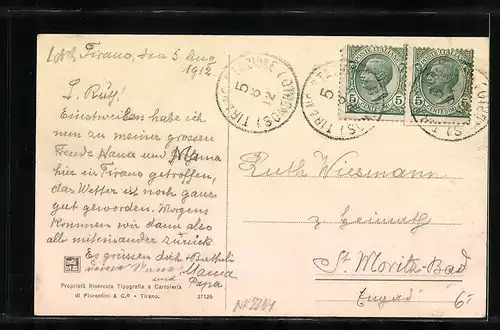 Tirano, den 5 Aug
1912
L. Ruth!
Einstweilen habe ich
nun zu meiner grossen
Freude Nana und Mama
hier in Tirano getroffen,
das Wetter ist noch ganz
gut geworden. Morgens
kommen wir dann also
alle miteinander zurück
Es grüssen dich
Mama
und Papa
Proprietà Riservata Tipografia e Cartoleria
di Fiorentini & C.º - Tirano.
37125
TIRANO STAZIONE (SONDRIO)
5 8 12
TIRANO STAZIONE (SONDRIO)
5
POSTE ITALIANE
5 5
CENTESIMI
POSTE ITALIANE
5
CENTESIMI
Ruth Wiesmann
z. Heimath
St. Moritz-Bad
Engad